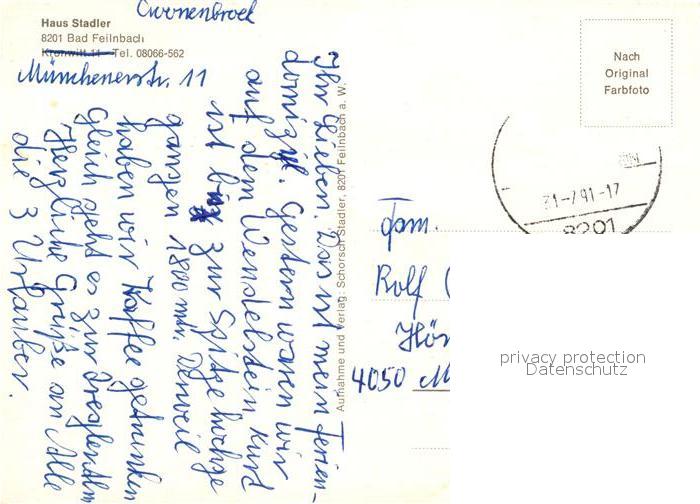 Haus Stadler
8201 Bad Feilnbach
Kronwitt 11 - Tel. 08066-562
Münchenerstr. 11
Ihr Lieben. Das ist mein Ferien-
domizil. Gestern waren wir
auf dem Wendelstein Kurd
ist bis zur Spitze hochge
gangen 1800 mtr. Derweil
haben wir Kaffee getrunken
Gleich geht es zur Tregleralm
Herzliche Grüße an Alle
die 3 Urlauber.
Aufnahme und Verlag: Schorsch Stadler, 8201 Feilnbach a. W.
Nach
Original
Farbfoto
31-7.91-17
8201
Fam.
Rolf
Hör
4050 M
privacy protection
Datenschutz